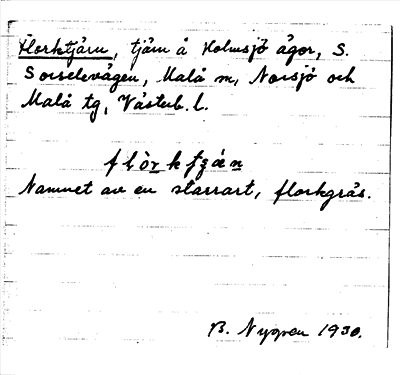 Florktjärn, tjärn å Holmsjö ägor, S.
Sorselevägen, Malå m, Norsjö och
Malå tg, Västerb. l.
flòrktʒán
Namnet av en starrart, florkgräs.
B. Nygren 1930.